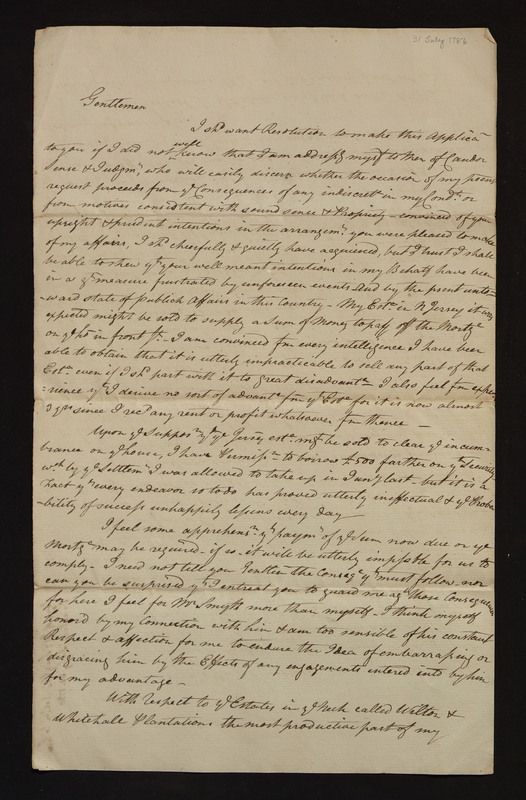 31 July 1786
Gentlemen
I shd want Resolution to make this Applican
to you if I did not well know that I am addressg myself to Men of Candor
Sense & Judgmt who will easily discern whether the occasion of my present
request proceeds from ye Consequences of any indiscretn in my Condt or
from motives consistent with sound sense & Propriety - convinced of your
upright & prudent intentions in the arrangemt you were pleased to make
of my affairs, I shd cheerfully & quietly have acquiesced, but I trust I shall
be able to shew yt your well meant intentions in my Behalf have been
in a gt measure frustrated by unforeseen events and by the prsent unto-
-ward state of Publich Affairs in this Country - My Este in N Jersey it was
expected might be sold to supply a Sum of Money to pay off the Mortge
on ye ho in front St - I am convinced fm every intelligence I have been
able to obtain that it is utterly impracticable to sell any part of that
Este even if I shd part with it to great disadvante I also feel fm expe-
-rience yt I derive no sort of advante fm yt Este for it is now almost
3 yrs since I recd any rent or profit whatsoever fm thence -
Upon ye Supposn yt ye Jersey este mt be sold to clear ye incum-
brance on ye house, I have permissn to borrow £500 farther on ye Security
wch by ye Settlemt I was allowed to take up in Juny last - but it is a
Fact yt every endeavor so to do has proved utterly ineffectual & ye Proba-
-bility of success unhappily lessens every day -
I feel some apprehensn yt paymt of ye Sum now due on ye
Mortge may be required - if so - it will be utterly impssble for us to
comply - I need not tell you Gentlen the Conseqe yt must follow - nor
can you be surprised yt I entreat you to guard me agt those Consequences
for here I feel for Mr Smyth more than myself - I think myself
honord by my Connection with him & am too sensible of his constant
Respect & affection for me to endure the Idea of embarrassing or
disgracing him by the Effects of any engagements entered into by him
for my advantage -
With Respect to ye Estates in ye Neck called Wilton &
Whitehall Plantations the most productive part of my